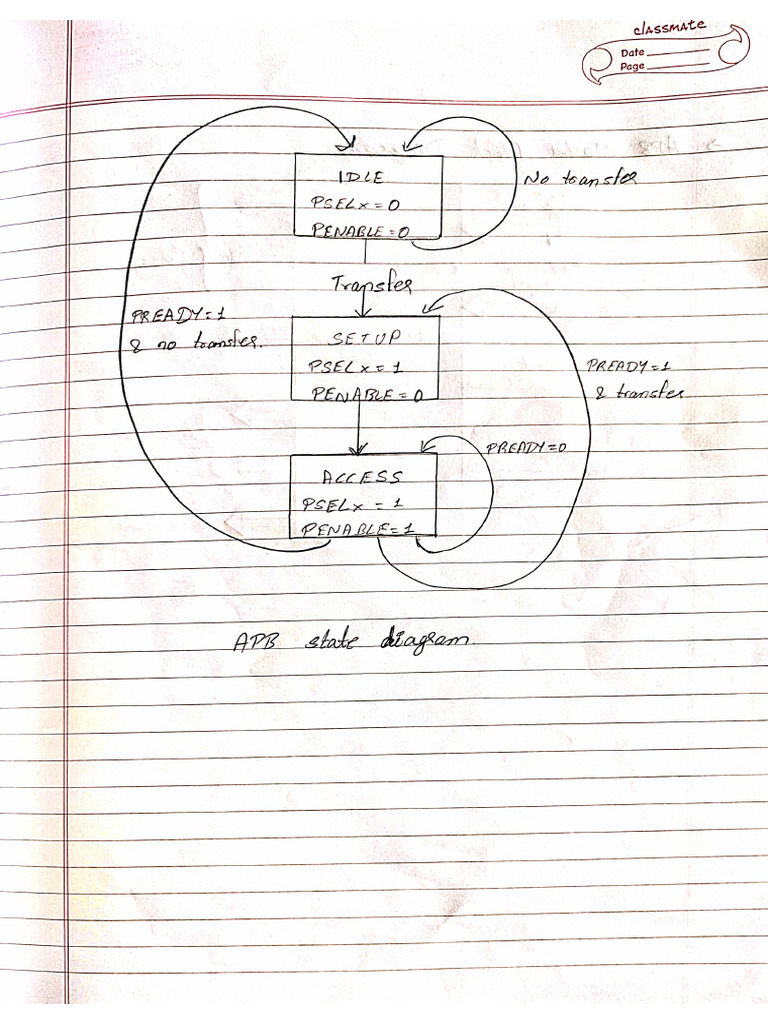 classmate
Date
Page
IDLE
PSELx = 0
PENABLE = 0
No transfer
Transfer
PREADY = 1
& no transfer.
SETUP
PSELx = 1
PENABLE = 0
PREADY = 1
& transfer
PREADY = 0
ACCESS
PSELx = 1
PENABLE = 1
APB state diagram.